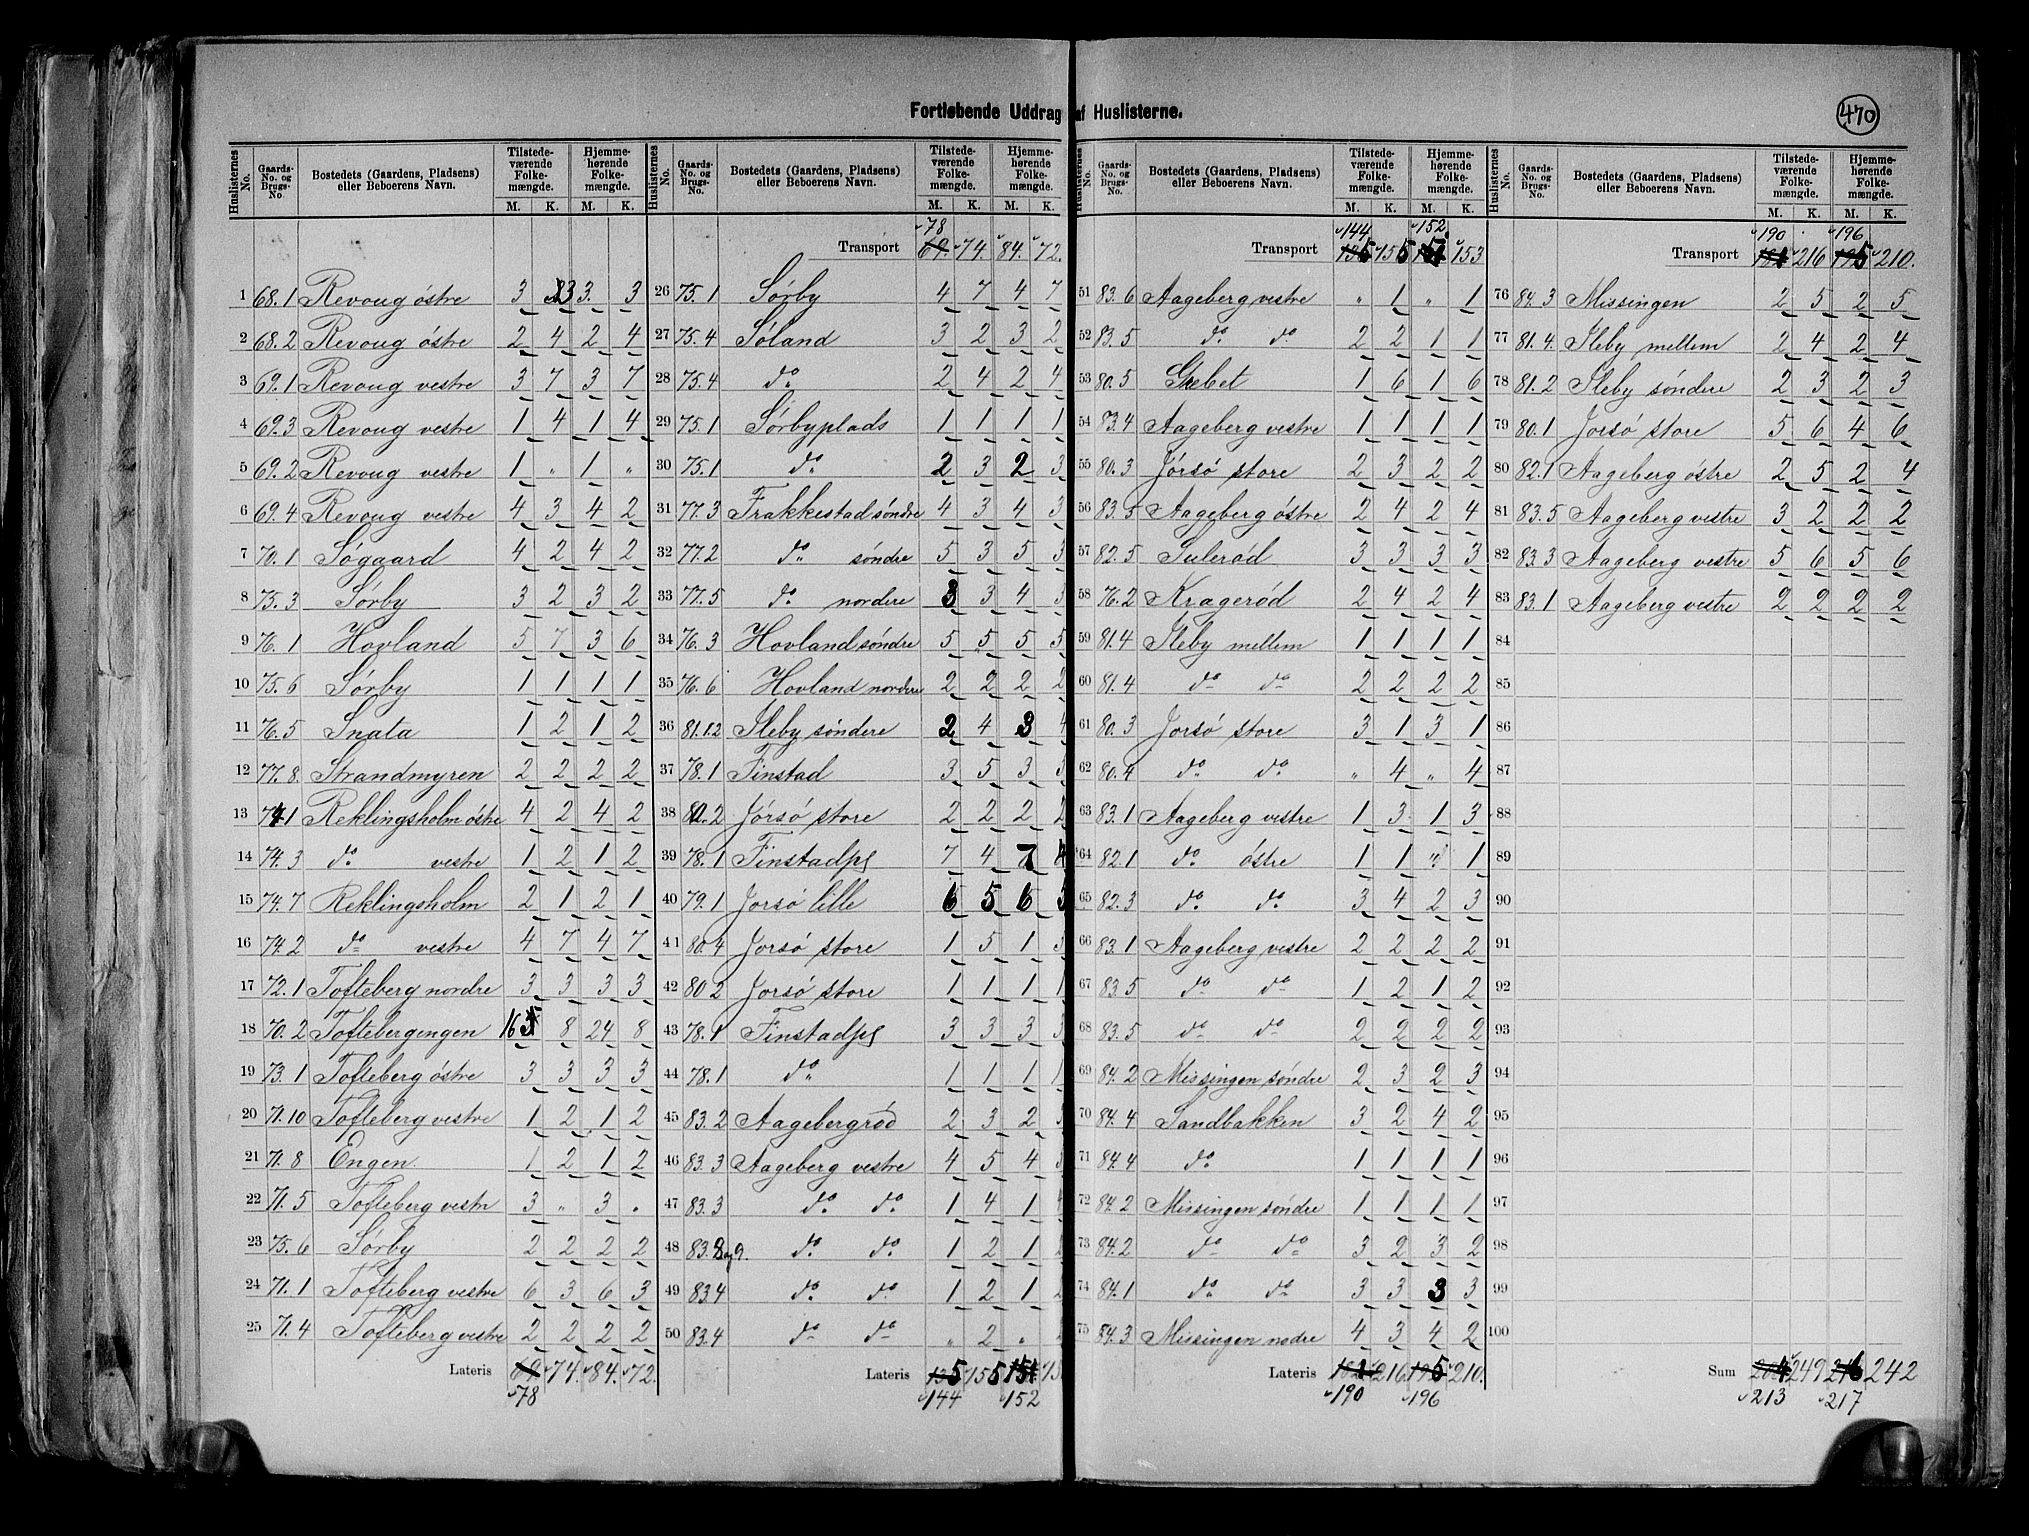 Fortløbende Uddrag af Huslisterne.
470
Huslisternes No. Gaards-No. og Brugs-No. Bostedets (Gaardens, Pladsens) eller Beboerens Navn. Tilstedeværende Folkemængde. M. K. Hjemmehørende Folkemængde. M. K.
1 68.1 Revoug østre 3 3 3 3
2 68.2 Revoug østre 2 4 2 4
3 69.1 Revoug vestre 3 7 3 7
4 69.3 Revoug vestre 1 4 1 4
5 69.2 Revoug vestre 1 " 1 "
6 69.4 Revoug vestre 4 3 4 2
7 70.1 Søgaard 4 2 4 2
8 75.3 Sørby 3 2 3 2
9 76.1 Hovland 5 7 3 6
10 75.6 Sørby 1 1 1 1
11 76.5 Snata 1 2 1 2
12 77.8 Strandmyren 2 2 2 2
13 74.1 Reklingsholm østre 4 2 4 2
14 74.3 do vestre 1 2 1 2
15 74.7 Reklingsholm 2 1 2 1
16 74.2 do vestre 4 7 4 7
17 72.1 Tofteberg nordre 3 3 3 3
18 70.2 Toftebergengen 16 8 24 8
19 73.1 Tofteberg østre 3 3 3 3
20 71.10 Tofteberg vestre 1 2 1 2
21 71.8 Engen 1 2 1 2
22 71.5 Tofteberg vestre 3 " 3 "
23 75.6 Sørby 2 2 2 2
24 71.1 Tofteberg vestre 6 3 6 3
25 71.4 Tofteberg vestre 2 2 2 2
Lateris 69 74. 84. 72.
78
Huslisternes No. Gaards-No. og Brugs-No. Bostedets (Gaardens, Pladsens) eller Beboerens Navn. Tilstedeværende Folkemængde. M. K. Hjemmehørende Folkemængde. M. K.
78
Transport 69. 74. 84. 72.
26 75.1 Sørby 4 7 4 7
27 75.4 Søland 3 2 3 2
28 75.4 do 2 4 2 4
29 75.1 Sørbyplads 1 1 1 1
30 75.1 do 2 3 2 3
31 77.3 Frakkestad søndre 4 3 4 3
32 77.2 do søndre 5 3 5 3
33 77.5 do nordere 3 3 4 3
34 76.3 Hovland søndre 5 5 5 5
35 76.6 Hovland nordere 2 2 2 2
36 81.1.2 Sleby søndere 2 4 3 4
37 78.1 Finstad 3 5 3 3
38 80.2 Jørsø store 2 2 2 2
39 78.1 Finstadpl 7 4 7 4
40 79.1 Jorsø lille 6 5 6 5
41 80.4 Jorsø store 1 5 1
42 80.2 Jorsø store 1 1 1 1
43 78.1 Finstadpl 3 3 3 3
44 78.1 do 1 1 1 1
45 83.2 Aagebergrød 2 3 2
46 83.3 Aageberg vestre 4 5 4
47 83.3 do do 1 4 1 4
48 83. do do 1 2 1 2
49 83.4 do do 1 2 1 2
50 83.4 do do " 2 "
Lateris 135 155 151
144 152
Huslisternes No. Gaards-No. og Brugs-No. Bostedets (Gaardens, Pladsens) eller Beboerens Navn. Tilstedeværende Folkemængde. M. K. Hjemmehørende Folkemængde. M. K.
144 152.
Transport 135 155 151 153
51 83.6 Aageberg vestre " 1 " 1
52 83.5 do do 2 2 1 1
53 80.5 Grebet 1 6 1 6
54 83.4 Aageberg vestre 1 1 1 1
55 80.3 Jórsø store 2 3 2 2
56 83.5 Aageberg østre 2 4 2 4
57 82.5 Sulerød 3 3 3 3
58 76.2 Kragerød 2 4 2 4
59 81.4 Sleby mellem 1 1 1 1
60 81.4 do do 2 2 2 2
61 80.3 Jorsø store 3 1 3 1
62 80.4 do do " 4 " 4
63 83.1 Aageberg vestre 1 3 1 3
64 82.1 do østre 1 1 " 1
65 82.3 do do 3 4 2 3
66 83.1 Aageberg vestre 2 2 2 2
67 83.5 do do 1 2 1 2
68 83.5 do do 2 2 2 2
69 84.2 Missingen søndre 2 3 2 3
70 84.4 Sandbakken 3 2 4 2
71 84.4 do 1 1 1 1
72 84.2 Missingen søndre 1 1 1 1
73 84.2 do do 3 2 3 2
74 84.1 do do 3 3 3 3
75 84.3 Missingen nodre 4 3 4 2
Lateris 216 195 210.
190 196
Huslisternes No. Gaards-No. og Brugs-No. Bostedets (Gaardens, Pladsens) eller Beboerens Navn. Tilstedeværende Folkemængde. M. K. Hjemmehørende Folkemængde. M. K.
190 196
Transport 216 195 210.
76 84.3 Missingen 2 5 2 5
77 81.4. Sleby mellem 2 4 2 4
78 81.2 Sleby søndere 2 3 2 3
79 80.1 Jorsø store 5 6 4 6
80 82.1 Aageberg østre 2 5 2 4
81 83.5 Aageberg vestre 3 2 2 2
82 83.3 Aageberg vestre 5 6 5 6
83 83.1 Aageberg vestre 2 2 2 2
84
85
86
87
88
89
90
91
92
93
94
95
96
97
98
99
100
Sum 249 216 242
213 217